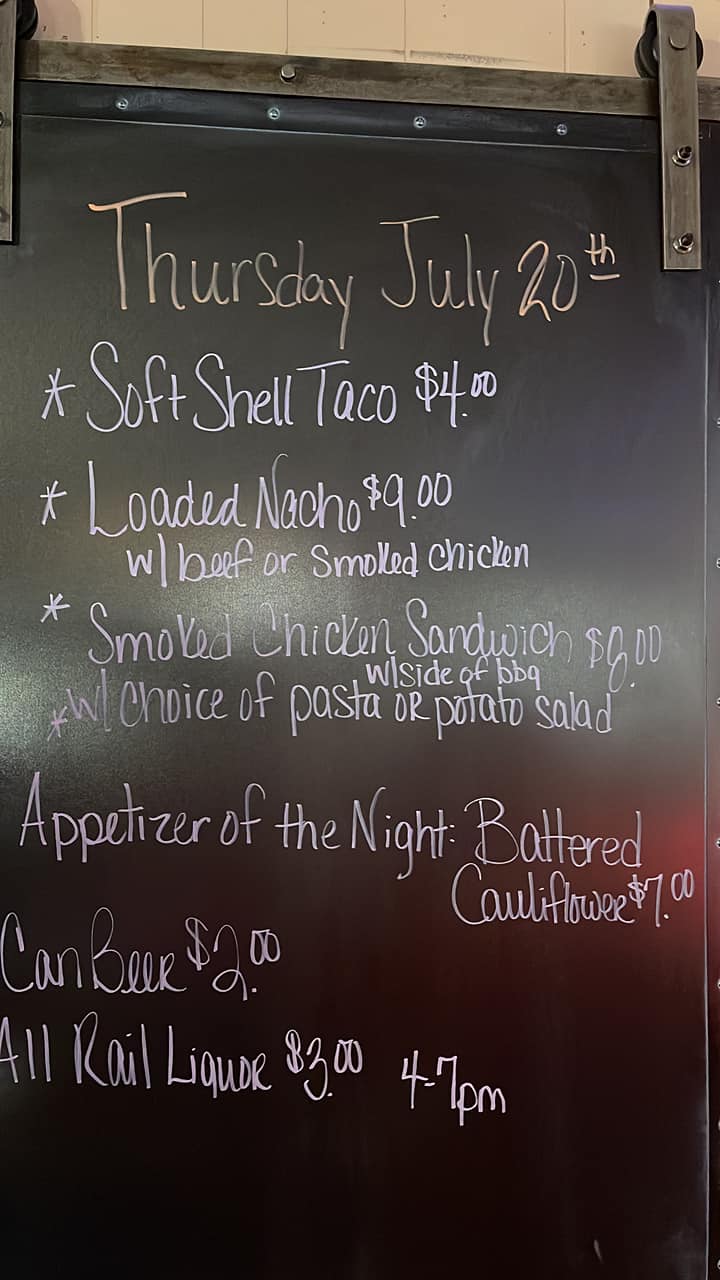 Thursday July 20th
* Soft Shell Taco $4.00
* Loaded Nacho $9.00
w/ beef or smoked chicken
* Smoked Chicken Sandwich $8.00
w/side of bbq
* w/ choice of pasta OR potato salad
Appetizer of the Night: Battered
Cauliflower $7.00
Can Beer $2.00
All Rail Liquor $3.00 4-7pm